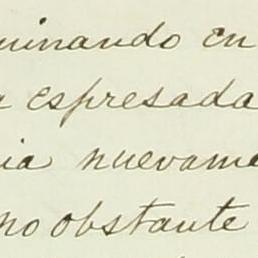 uinando en
a espresada
ia nuevame
no obstante